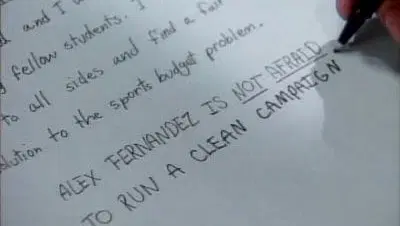 and I w
fellow students. I
to all sides and find a fair
solution to the sports budget problem.
ALEX FERNANDEZ IS NOT AFRAID
TO RUN A CLEAN CAMPAIGN